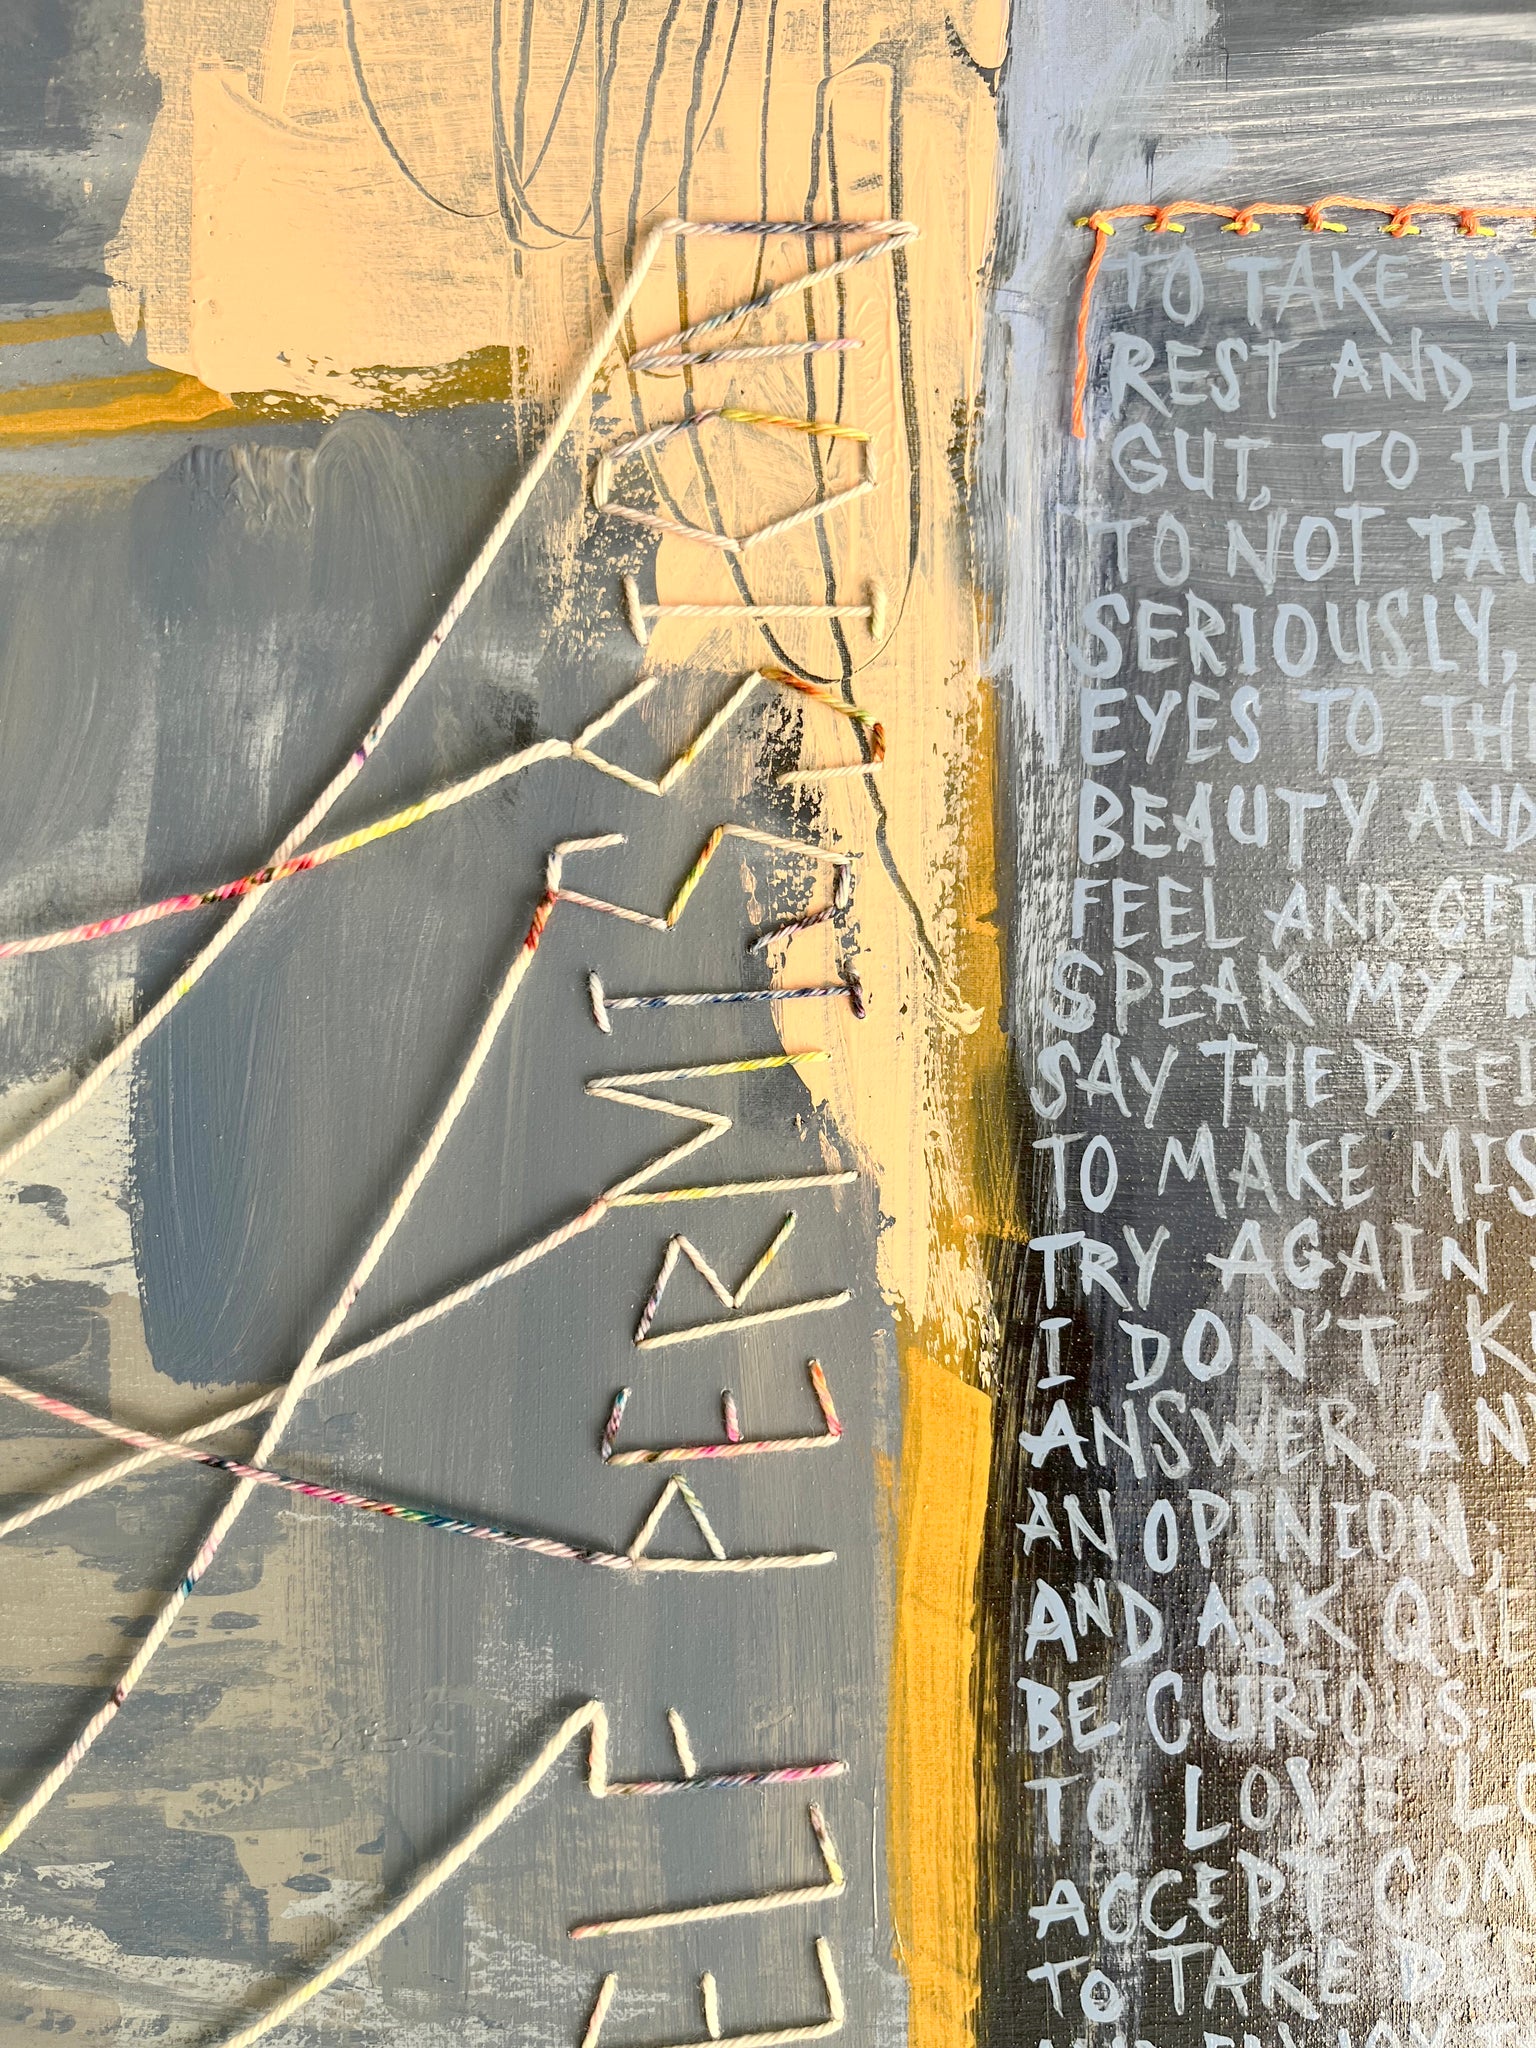 ELF PERMISSION
TO TAKE UP
REST AND L
GUT, TO HO
TO NOT TAK
SERIOUSLY,
EYES TO TH
BEAUTY AND
FEEL AND GET
SPEAK MY
SAY THE DIFFI
TO MAKE MIS
TRY AGAIN
I DON'T K
ANSWER AN
AN OPINION;
AND ASK QUE
BE CURIOUS.
TO LOVE LO
ACCEPT COM
TO TAKE DE
AND ENJOY T